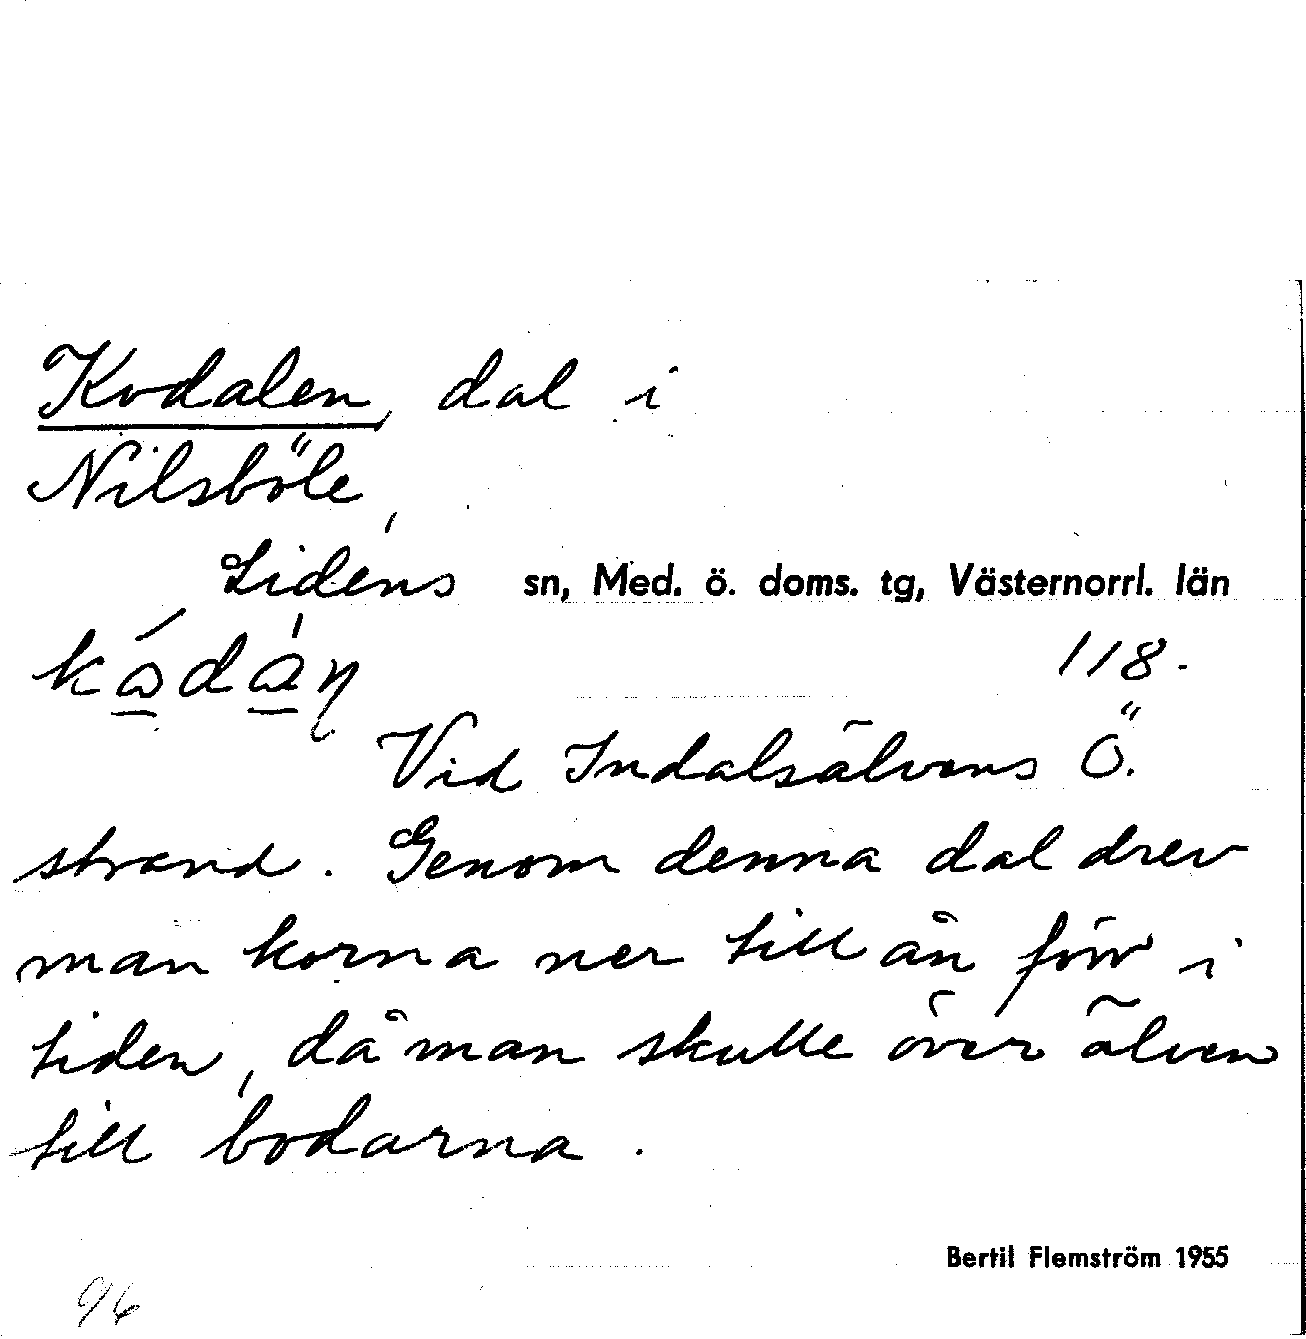 Kodalen, dal i
Nilsböle,
Lidens sn, Med. ö. doms. tg, Västernorrl. län
118.
Vid Indalsälvens Ö.
strand. Genom denna dal drev
man korna ner till ån förr i
tiden, då man skulle över älven
till bodarna.
Bertil Flemström 1955